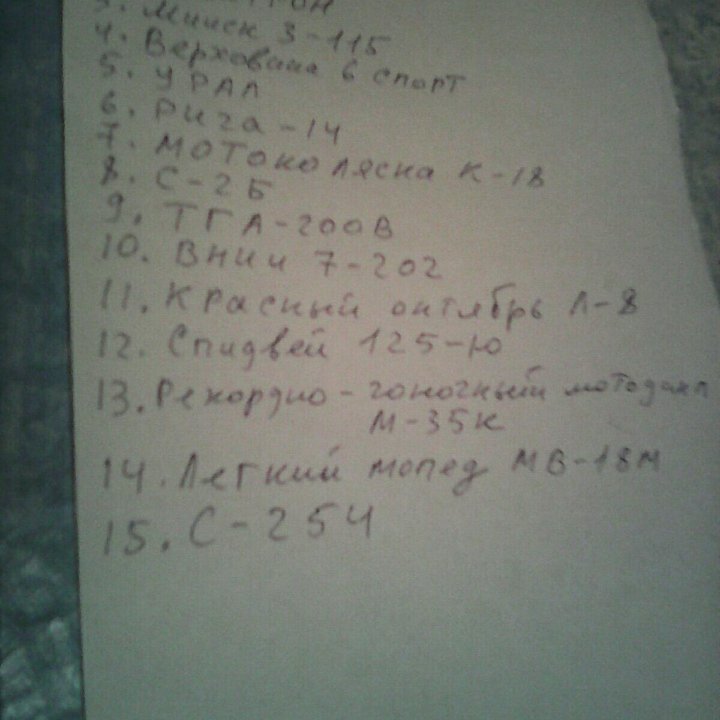 3. Минск 3-115
4. Верховина 6 спорт
5. УРАЛ
6. Рига-14
7. Мотоколяска К-18
8. С-2Б
9. ТГА-200В
10. ВНИИ 7-202
11. Красный октябрь Л-8
12. Спидвей 125-Ю
13. Рекордно-гоночный мотоцикл
М-35К
14. Легкий мопед МВ-18М
15. С-254